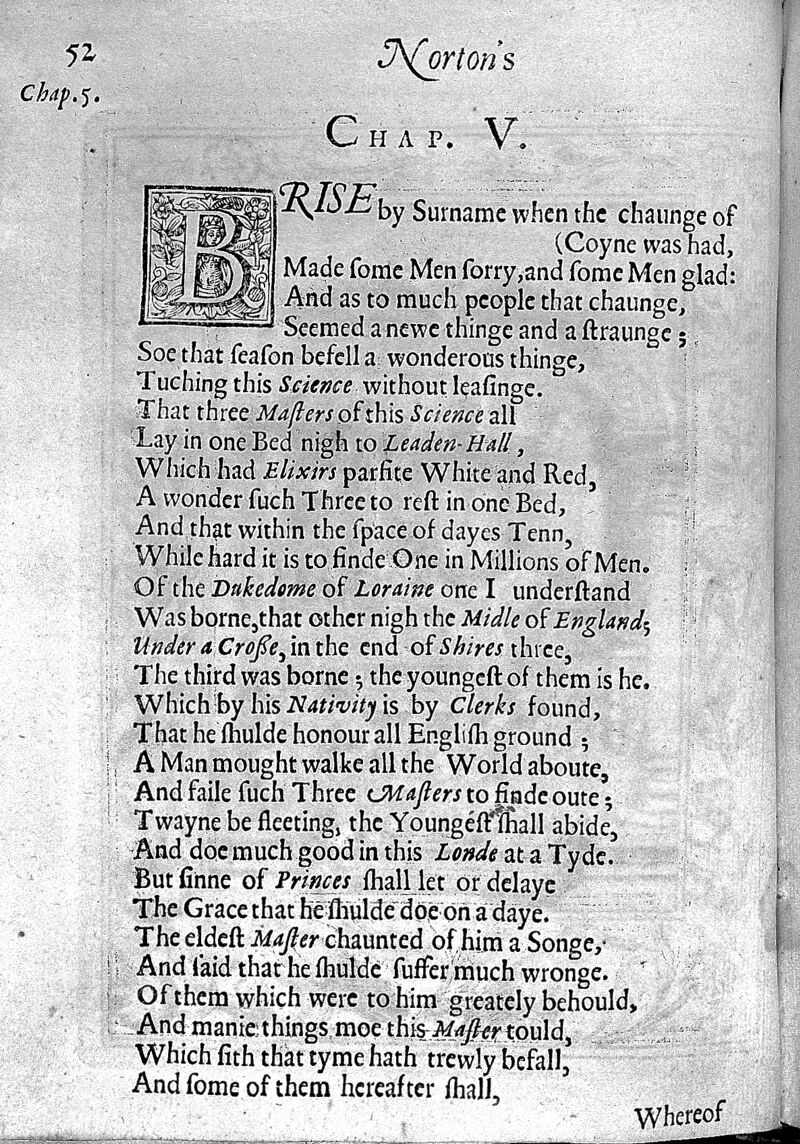 52
Norton's
Chap. 5.
CHAP. V.
BRISE by Surname when the chaunge of
(Coyne was had,
Made ſome Men ſorry, and ſome Men glad:
And as to much people that chaunge,
Seemed a newe thinge and a ſtraunge;
Soe that ſeaſon befell a wonderous thinge,
Tuching this Science without leaſinge.
That three Maſters of this Science all
Lay in one Bed nigh to Leaden-Hall,
Which had Elixirs parfite White and Red,
A wonder ſuch Three to reſt in one Bed,
And that within the ſpace of dayes Tenn,
While hard it is to finde One in Millions of Men.
Of the Dukedome of Loraine one I underſtand
Was borne, that other nigh the Midle of England;
Under a Croſſe, in the end of Shires three,
The third was borne; the youngeſt of them is he.
Which by his Nativity is by Clerks found,
That he ſhulde honour all Engliſh ground;
A Man mought walke all the World aboute,
And faile ſuch Three Maſters to finde oute;
Twayne be fleeting, the Youngeſt ſhall abide,
And doe much good in this Londe at a Tyde.
But ſinne of Princes ſhall let or delaye
The Grace that he ſhulde doe on a daye.
The eldeſt Maſter chaunted of him a Songe,
And ſaid that he ſhulde ſuffer much wronge.
Of them which were to him greately behould,
And manie things moe this Maſter tould,
Which ſith that tyme hath trewly befall,
And ſome of them hereafter ſhall,
Whereof